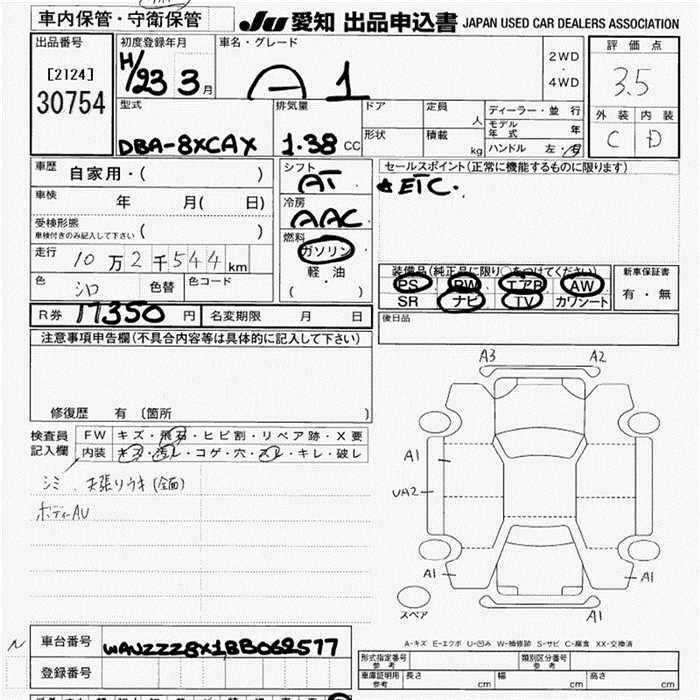 車内保管・守衛保管
JU 愛知 出品申込書 JAPAN USED CAR DEALERS ASSOCIATION
出品番号
[2124]
30754
初度登録年月
H/23 3月
車名・グレード
A1
2WD
・
4WD
評価点
3.5
外装 内装
C D
型式
DBA-8XCAX
排気量
1.38 CC
ドア
形状
定員 人
積載 kg
ディーラー・並行
モデル年式 年
ハンドル 左・右
車歴 自家用・( )
車検 年 月( 日)
受検形態 ( )
車検付きのみ記入して下さい
走行 10万2千544km
色 シロ 色替 色コード
シフト
AT
冷房
AAC
燃料
ガソリン・
軽・油
( )
セールスポイント(正常に機能するものに限ります)
★ETC.
装備品(純正品に限り○をつけてください)
PS PW エアB AW
SR ナビ TV カワシート
新車保証書
有・無
R券 17350円 名変期限 月 日
後日品
注意事項申告欄(不具合内容等は具体的に記入して下さい)
修復歴 有 〔箇所 〕
検査員記入欄
FW キズ・飛石・ヒビ割・リペア跡・X要
内装 キズ・汚レ・コゲ・穴・スレ・キレ・破レ
シミ、天張りウキ(全面)
ボディーAU
A3 A2
A1
UA2
A1 A1
A1
スペア
A-キズ E-エクボ U-凹み W-補修跡 S-サビ C-腐食 XX-交換済
車台番号 WAUZZZ8X1BB062577
登録番号
型式指定番号 参考
類別区分番号 参考
車庫証明用 参考 長さ cm 幅 cm 高さ cm